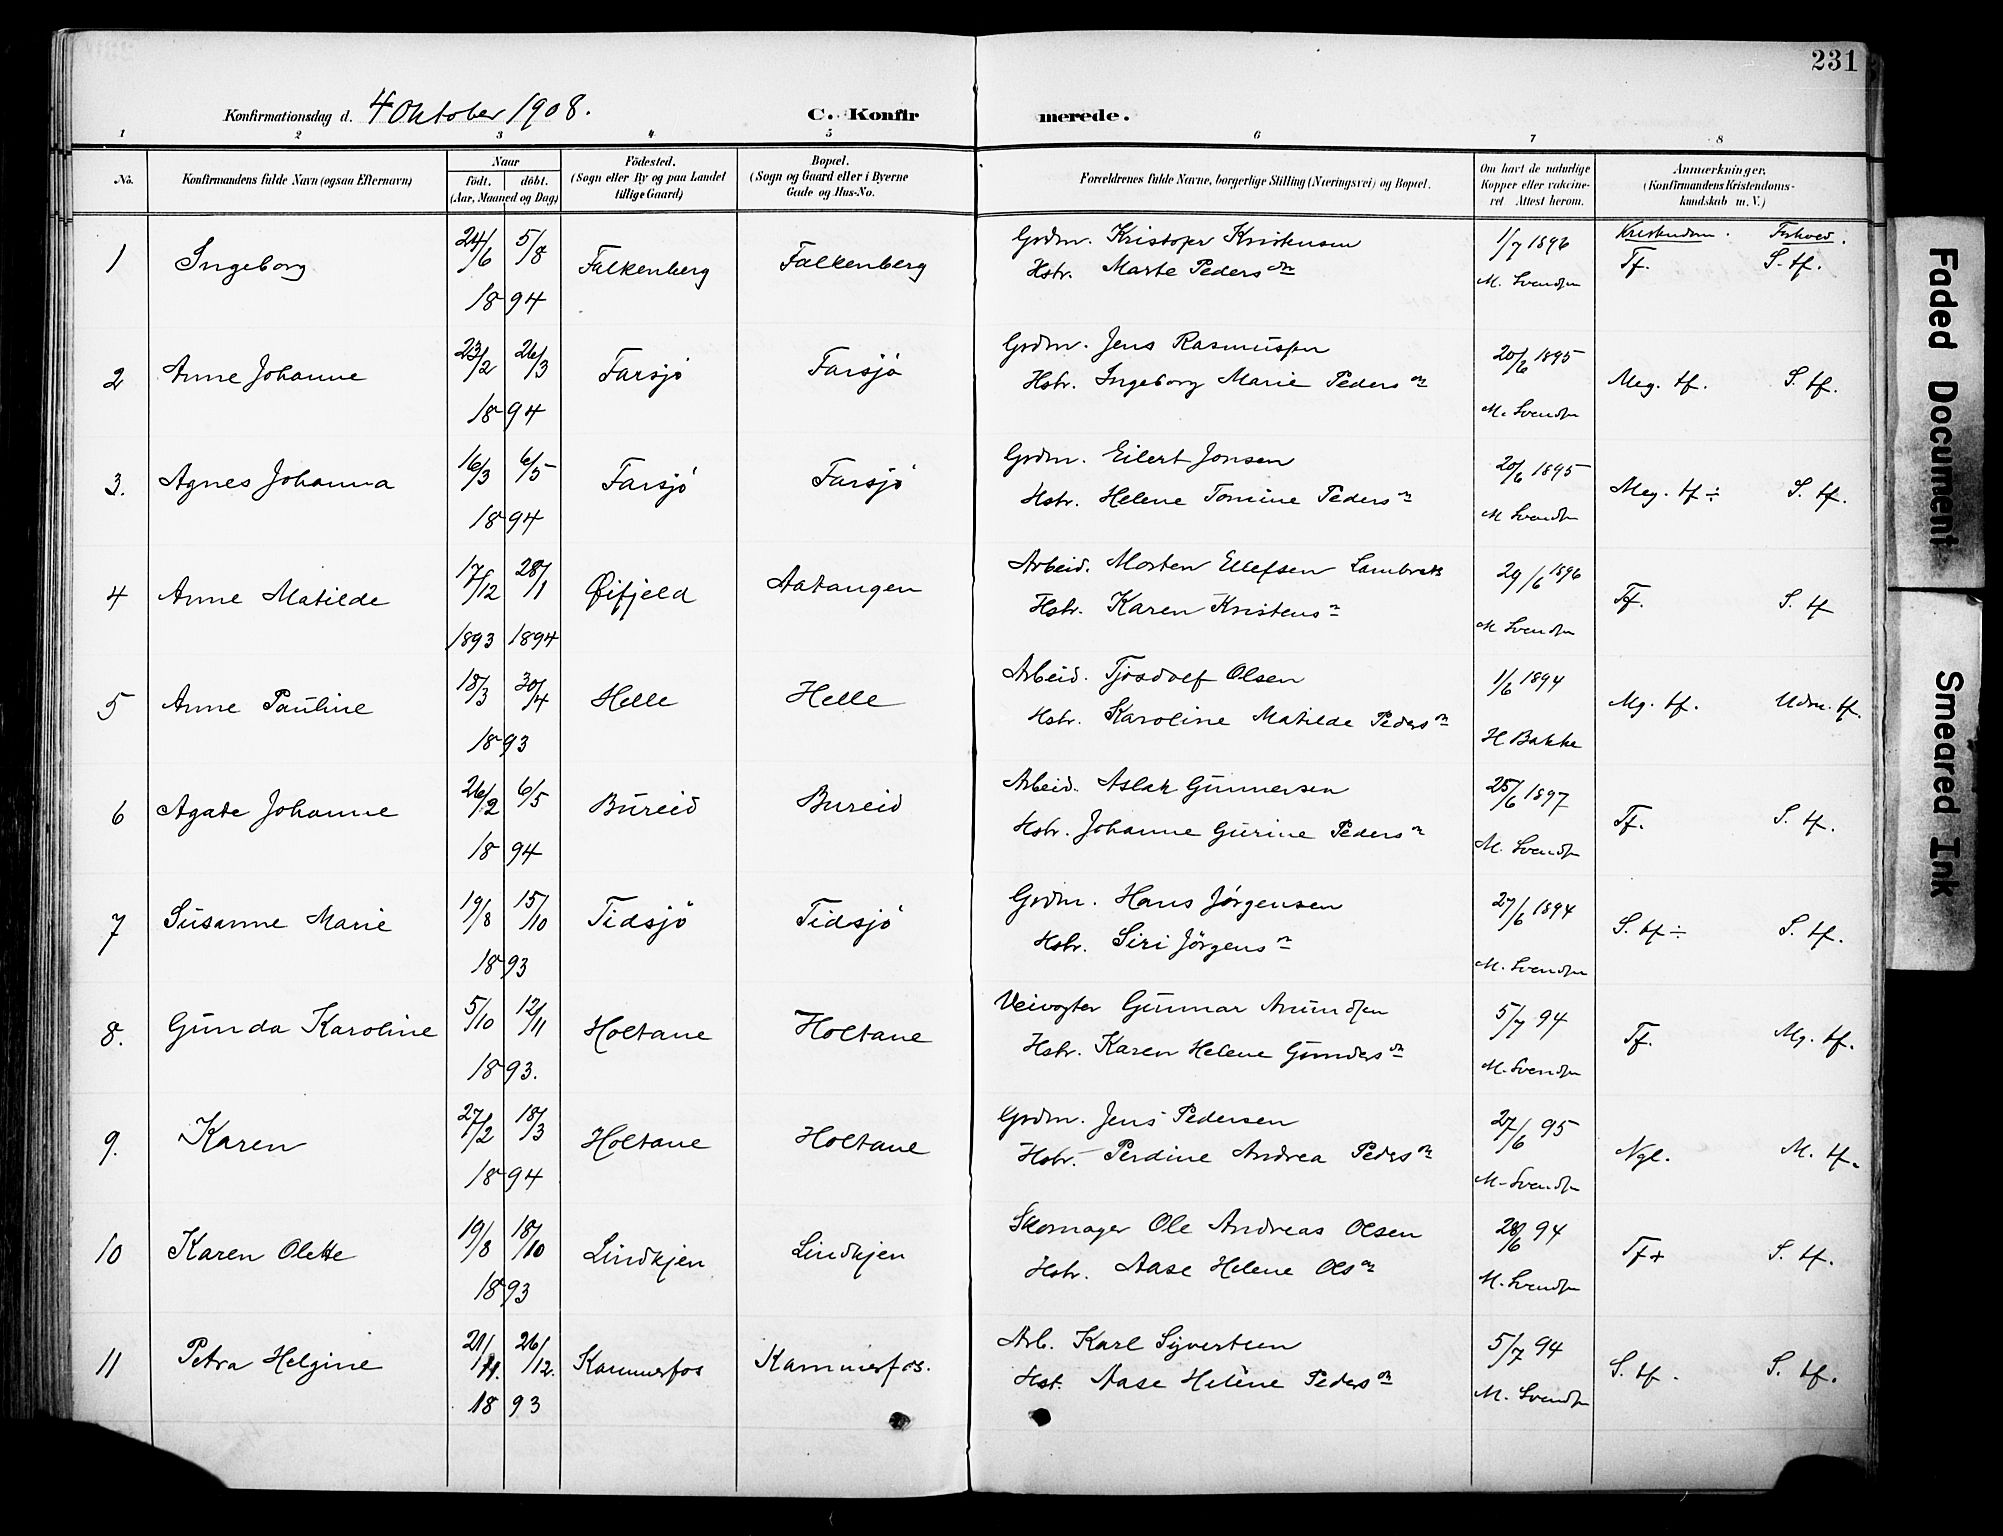 231
Konfirmationsdag d. 4 Oktober 1908. C. Konfirmerede.
1 2 3 4 5 6 7 8
No. Konfirmandens fulde Navn (ogsaa Efternavn) Naar født. døbt. (Aar, Maaned og Dag) Fødested. (Sogn eller By og paa Landet tillige Gaard) Bopæl. (Sogn og Gaard eller i Byerne Gade og Hus-No. Forældrenes fulde Navne, borgerlige Stilling (Næringsvei) og Bopæl. Om havt de naturlige Kopper eller vaccineret Attest herom. Anmærkninger. (Konfirmandens Kristendomskundskab m. V.)
Kristendom. Forhold.
1 Ingeborg 24/6 5/8 1894 Falkenberg Falkenberg Grdm. Kristofer Kristensen 1/7 1896 Tf. S. tf.
Hstr. Marte Pedersdn M. Svendsen
2 Anne Johanne 23/2 26/3 1894 Farsjø Farsjø Grdm. Jens Rasmussen 20/6 1895 Meg. tf. S. tf.
Hstr. Ingeborg Marie Pedersdn M. Svendsen
3. Agnes Johanna 16/3 6/5 1894 Farsjø Farsjø Grdm. Eilert Jonsen 20/6 1895 Meg. tf ÷ S. tf.
Hstr. Helene Tomine Pedersn M Svendsen
4 Anne Matilde 17/12 1893 28/1 1894 Øifjeld Aatangen Arbeid. Morten Ellefsen 29/6 1896 Tf. S. tf
Hstr. Karen Kristensn M Svendsen
5 Anne Pauline 18/3 30/4 1893 Helle Helle Arbeid. Tjosdolf Olsen 1/6 1894 Mg. tf. Udm. tf.
Hstr. Karoline Matilde Pedersdn H Bakke
6 Agate Johanne 26/2 6/5 1894 Bureid Bureid Arbeid. Aslak Gunnersen 25/6 1897 Tf. S. tf.
Hstr. Johanne Gurine Pedersn M. Svendsen
7 Susanne Marie 19/8 15/10 1893 Tidsjø Tidsjø Grdm. Hans Jørgensen 27/6 1894 S. tf ÷ S. tf.
Hstr. Siri Jørgensn M. Svendsen
8. Gunda Karoline 5/10 12/11 1893. Holtane Holtane Veivogter Gunnar Amundsen 5/7 94 Tf. Mg. tf.
Hstr. Karen Helene Gundersdn M. Svendsen
9. Karen 27/2 18/3 1894 Holtane Holtane Grdm. Jens Pedersen 27/6 95 Ngl. M. tf.
Hstr. Perdine Andrea Pedersdn M. Svendsen
10 Karen Olette 19/8 18/10 1893 Lindkjen Lindkjen Skomager Ole Andreas Olsen 28/6 94 Tf+ S. tf.
Hstr. Aase Helene Olsdn M. Svendsen
11 Petra Helgine 21/11. 26/12. 1893 Kammerfos Kammerfos. Arb. Karl Syvertsen 5/7 94 S. tf. S. tf.
Hst. Aase Helene Pedersdn M. Svendsen
Faded Document
Smeared Ink